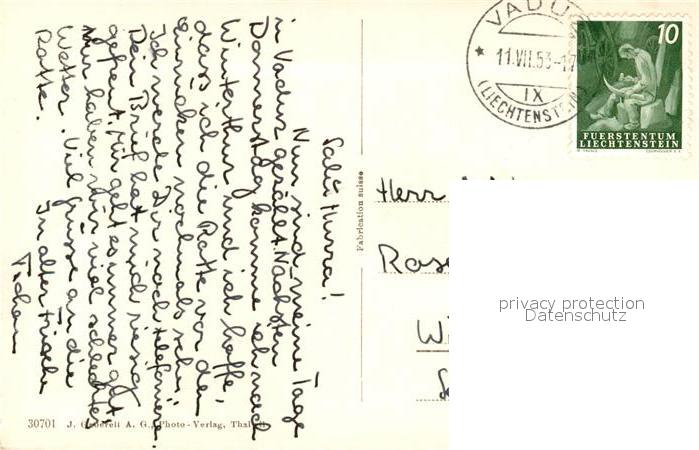 Salü Hurra!
Nun sind meine Tage
in Vaduz gezählt. Nächsten
Donnerstag komme ich nach
Winterthur und ich hoffe,
dass ich die Rotte vor dem
Einrücken nochmals sehe.
Ich werde Dir noch telefonieren.
Dein Brief hat mich riesig
gefreut. Mir geht es immer gut
Wir haben sehr viel schlechtes
Wetter. Viel Grüsse an die
Rotte.
In alter Frische
Fabrication suisse
VADUZ
11.VII.53-17
IX
(LIECHTENSTEIN)
10
FUERSTENTUM
LIECHTENSTEIN
Herr
Rose
Wi
privacy protection
Datenschutz
30701 J. Gaberell A. G., Photo-Verlag, Thalwil